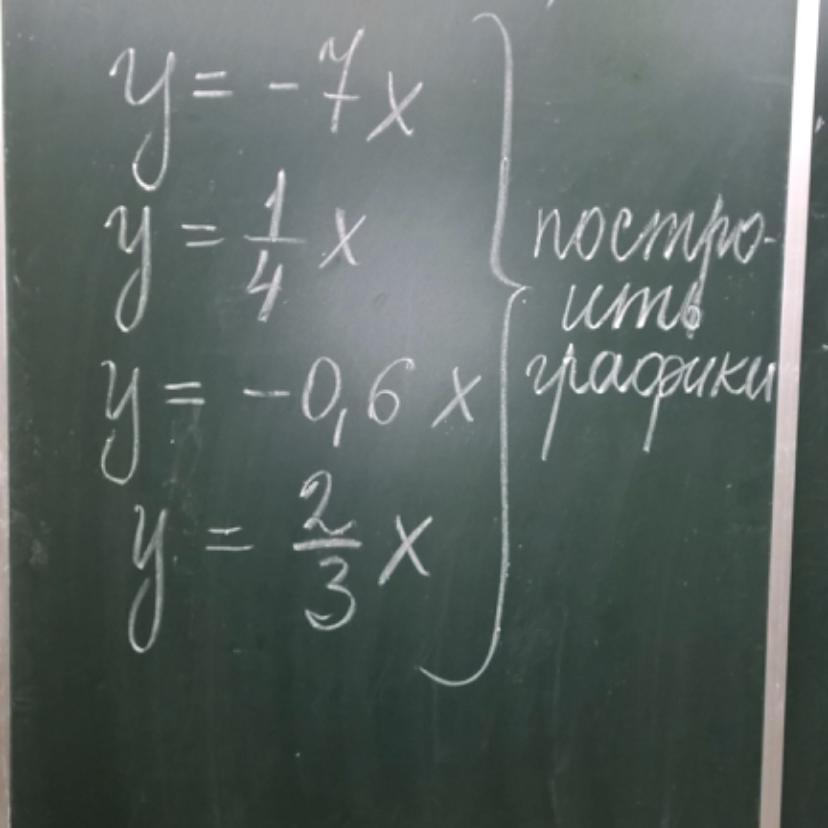 y = -7x
y = 1/4 x
y = -0,6 x
y = 2/3 x
постро-
ить
графики